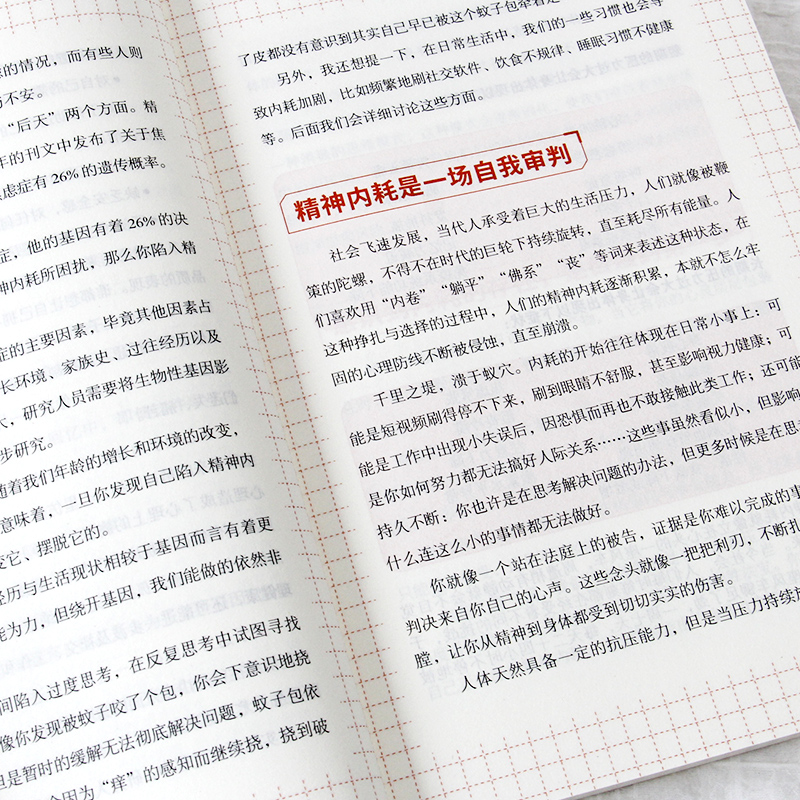 的情况，而有些人则
不安。
“后天”两个方面。精
年的刊文中发布了关于焦
虑症有26%的遗传概率。
症，他的基因有着26%的决
神内耗所困扰，那么你陷入精
症的主要因素，毕竟其他因素占
长环境、家族史、过往经历以及
大，研究人员需要将生物性基因影
步研究。
随着我们年龄的增长和环境的改变，
意味着，一旦你发现自己陷入精神内
变它、摆脱它的。
经历与生活现状相较于基因而言有着更
能为力，但绕开基因，我们能做的依然非
间陷入过度思考，在反复思考中试图寻找
像你发现被蚊子咬了个包，你会下意识地挠
但是暂时的缓解无法彻底解决问题，蚊子包依
因为“痒”的感知而继续挠，挠到破
了皮都没有意识到其实自己早已被这个蚊子包牵着走
另外，我还想提一下，在日常生活中，我们的一些习惯也会导
致内耗加剧，比如频繁地刷社交软件、饮食不规律、睡眠习惯不健康
等。后面我们会详细讨论这些方面。
精神内耗是一场自我审判
社会飞速发展，当代人承受着巨大的生活压力，人们就像被鞭
策的陀螺，不得不在时代的巨轮下持续旋转，直至耗尽所有能量。人
们喜欢用“内卷”“躺平”“佛系”“丧”等词来表述这种状态，在
这种挣扎与选择的过程中，人们的精神内耗逐渐积累，本就不怎么牢
固的心理防线不断被侵蚀，直至崩溃。
千里之堤，溃于蚁穴。内耗的开始往往体现在日常小事上：可
能是短视频刷得停不下来，刷到眼睛不舒服，甚至影响视力健康；可
能是工作中出现小失误后，因恐惧而再也不敢接触此类工作；还可能
是你如何努力都无法搞好人际关系……这些事虽然看似小，但影响
持久不断：你也许是在思考解决问题的办法，但更多时候是在思
什么连这么小的事情都无法做好。
你就像一个站在法庭上的被告，证据是你难以完成的事
判决来自你自己的心声。这些念头就像一把把利刃，不断扎
膛，让你从精神到身体都受到切切实实的伤害。
人体天然具备一定的抗压能力，但是当压力持续